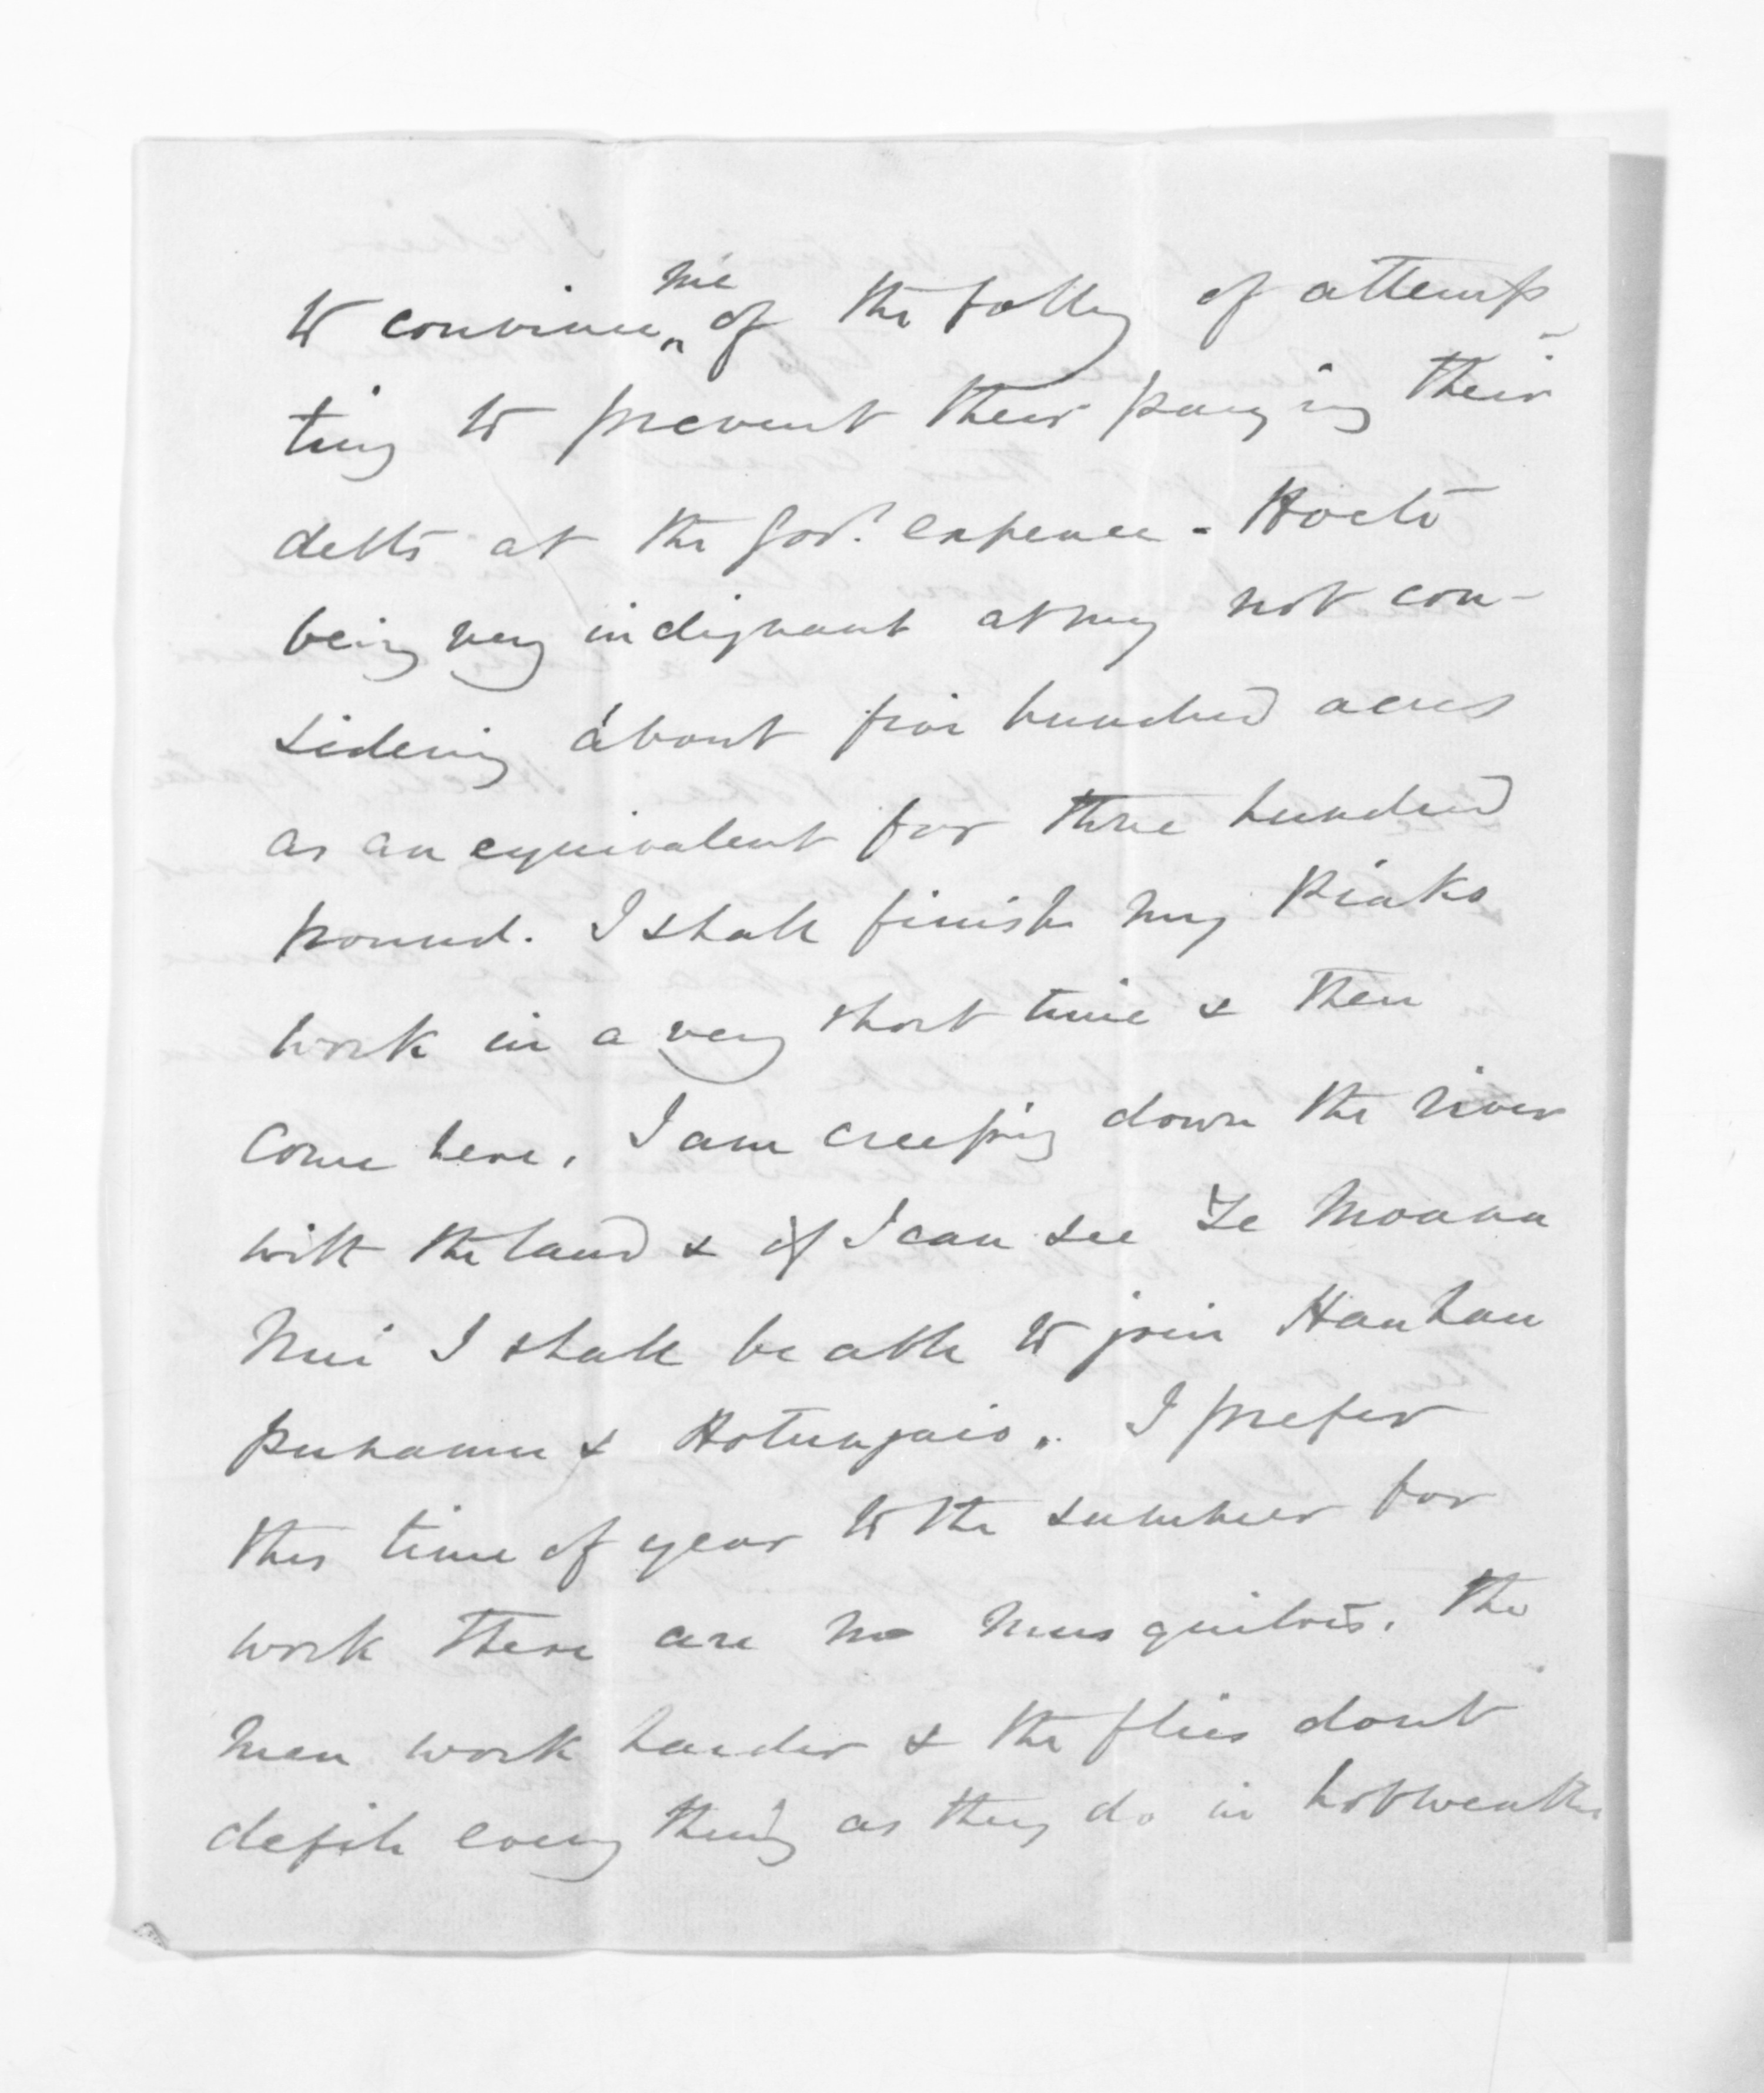 to convince me of the folly of attemp-
ting to prevent their paying their
debts at the Gov.t expence - Hoete
being very indignant at my not con-
sidering about five hundred acres
as an equivalent for three hundred
pound. I shall finish my Piako
work in a very short time & then
come here, I am creeping down the river
with the land & if I can see Te Moana
Nui I shall be able to join Hauhau
Puhamu & Hotungaio. I prefer
this time of year to the summer for
work there are no musquitoes. The
men work harder & the flies dont
defile every thing as they do in hot weather